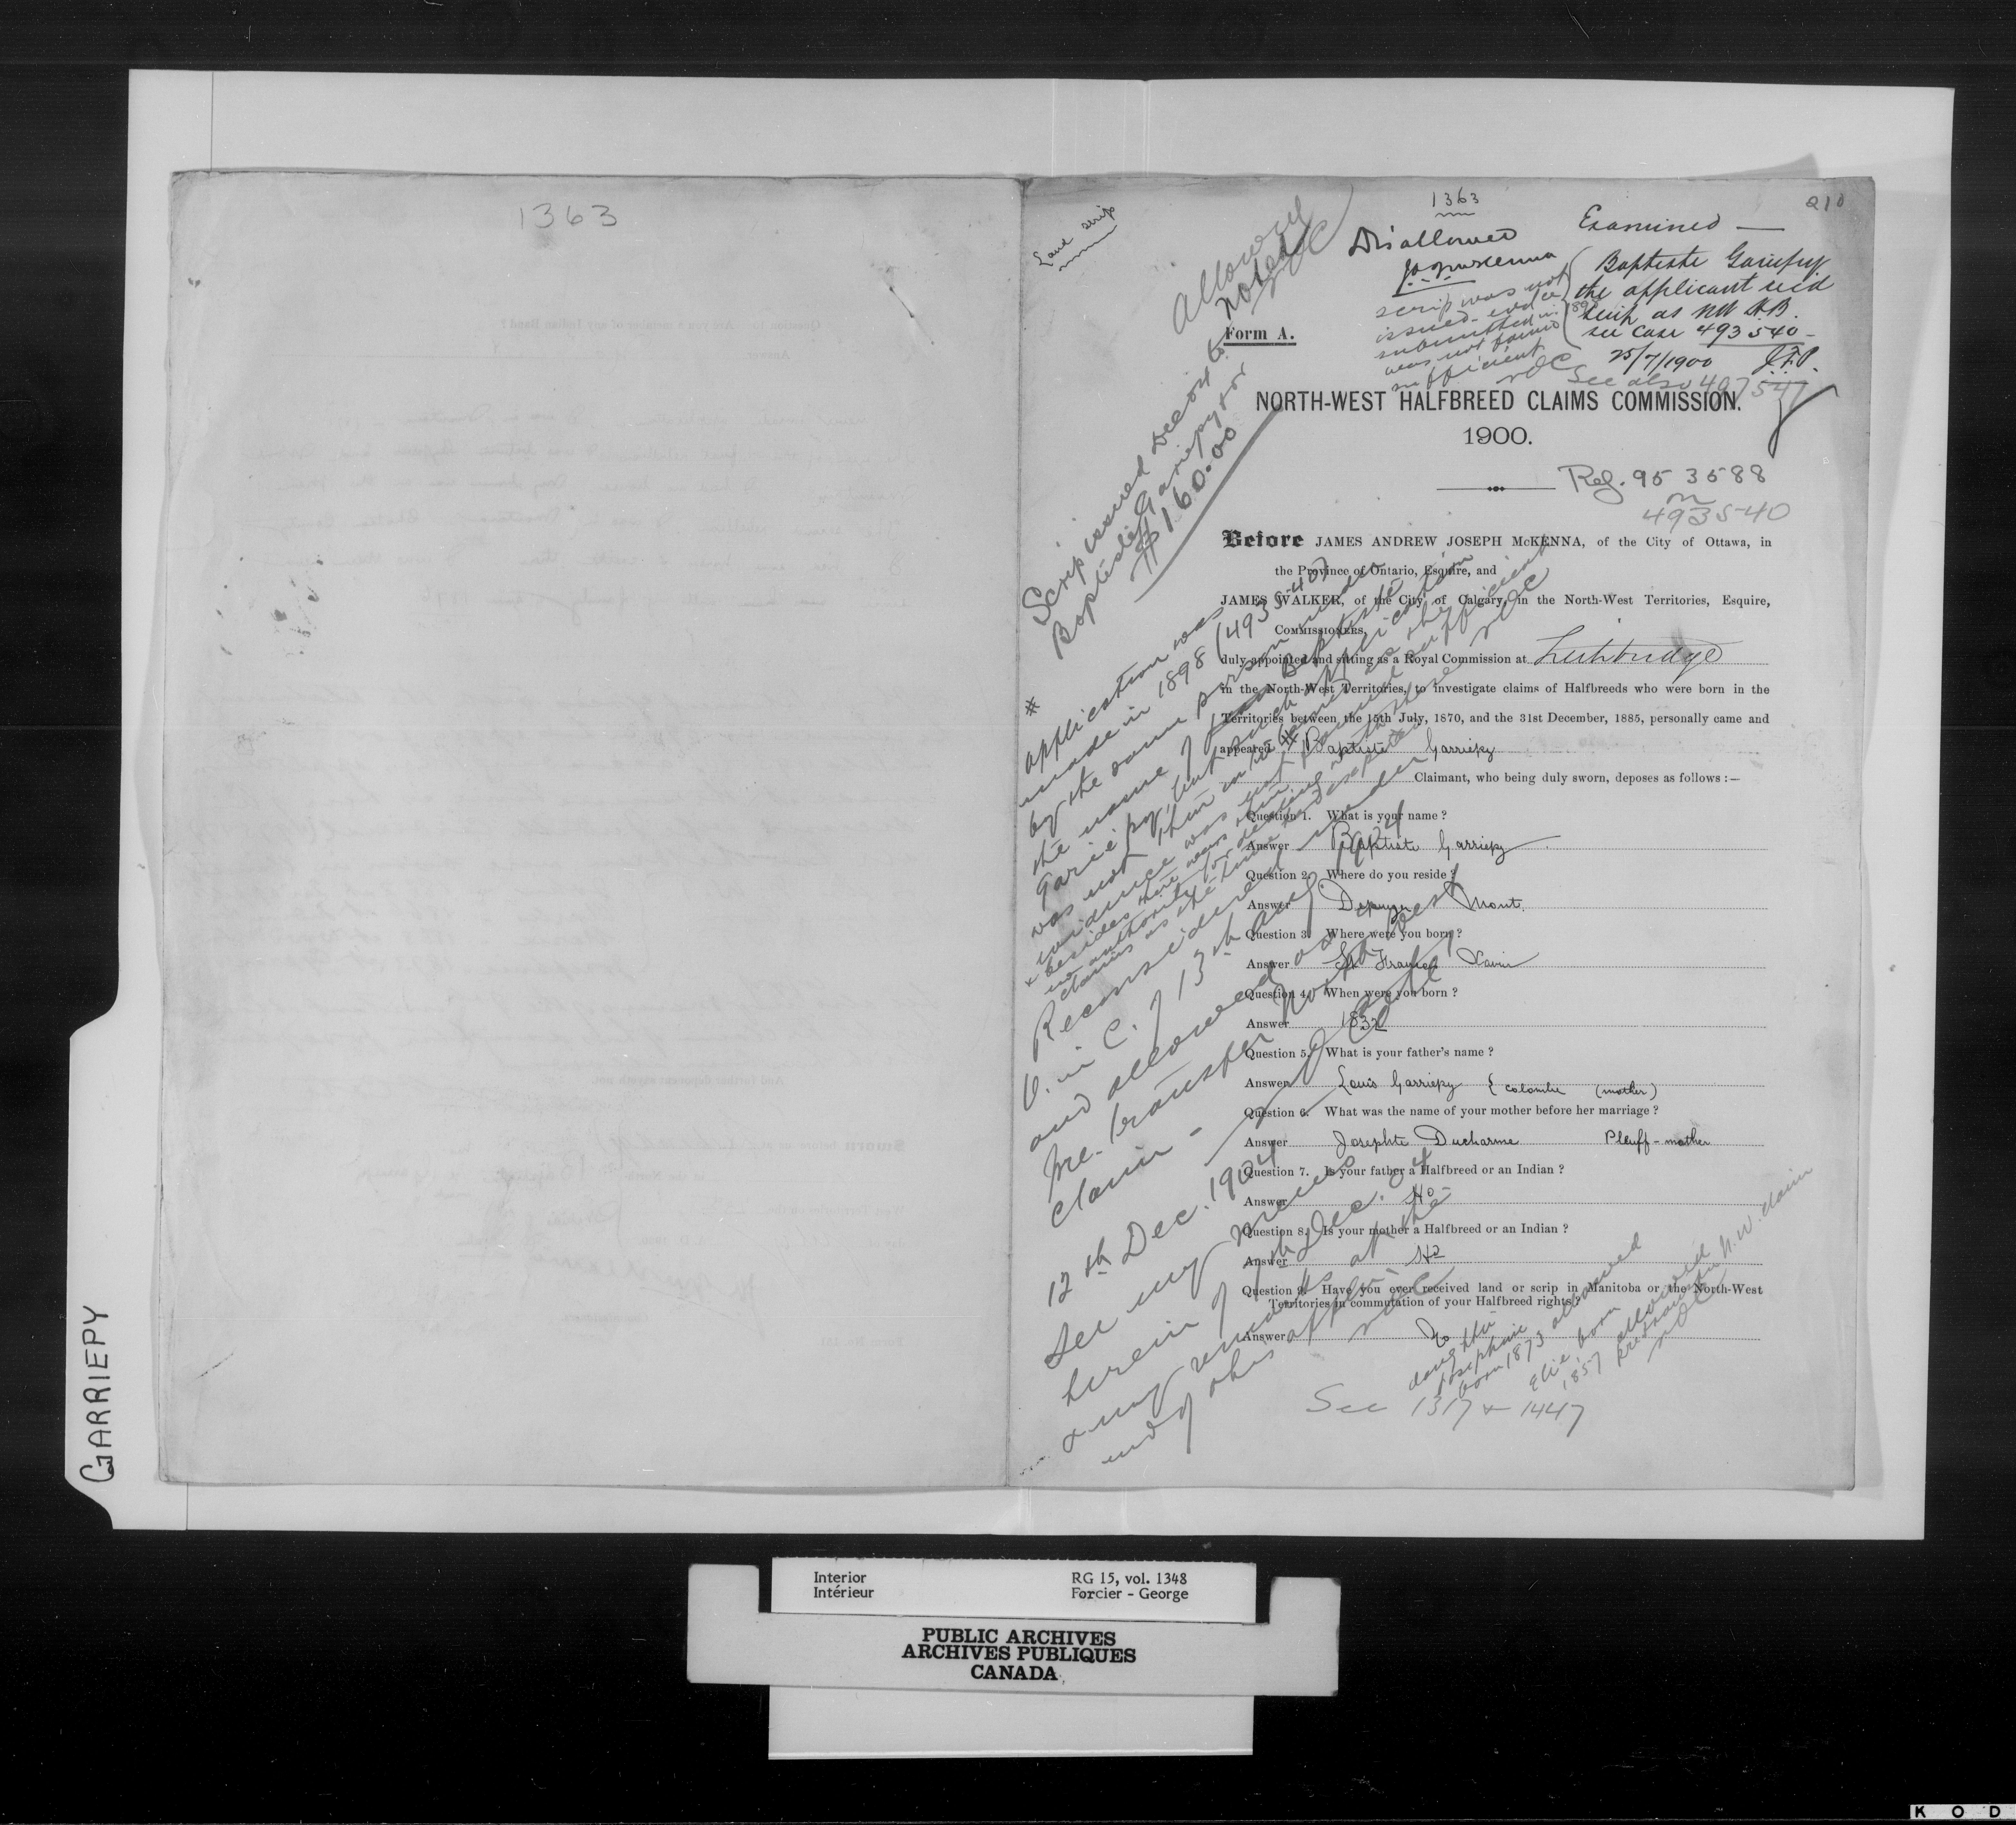 1363
GARRIEPY
1363
210
Land scrip
Allowed
Noted
NOC
Disallowed
JAJ McKenna
scrip was not
issued - evidce
submitted in 1898
was not found
sufficient
NOC
Examined —
Baptiste Gariepy
the applicant recd
scrip as NW H.B.
see case 493540 -
25/7/1900 J.F.P.
See also 497547
Form A.
NORTH-WEST HALFBREED CLAIMS COMMISSION.
1900.
Ref. 953588
m
493540
Scrip issued Dec 04 to
Baptiste Gariepy for
$160.00
Before JAMES ANDREW JOSEPH McKENNA, of the City of Ottawa, in
the Province of Ontario, Esquire, and
JAMES WALKER, of the City of Calgary, in the North-West Territories, Esquire,
COMMISSIONERS,
duly appointed and sitting as a Royal Commission at Lethbridge
in the North-West Territories, to investigate claims of Halfbreeds who were born in the
Territories between the 15th July, 1870, and the 31st December, 1885, personally came and
appeared # Baptiste Garriepy
Claimant, who being duly sworn, deposes as follows :—
Question 1. What is your name ?
Answer Baptiste Garriepy
Question 2. Where do you reside ?
Answer Dupuyer Mont.
Question 3. Where were you born ?
Answer St Francois Xavier
Question 4. When were you born ?
Answer 1832
Question 5. What is your father's name ?
Answer Louis Garriepy { colombe (mother)
Question 6. What was the name of your mother before her marriage ?
Answer Josephte Ducharme Pleuff - mother
Question 7. Is your father a Halfbreed or an Indian ?
Answer No -
Question 8. Is your mother a Halfbreed or an Indian ?
Answer No
Question 9. Have you ever received land or scrip in Manitoba or the North-West
Territories in commutation of your Halfbreed rights ?
Answer No
# application was
made in 1898 (493540)
by the same person under
the name of Jean Baptiste
Gariépy, but such application
was not then entertained as the
evidence was not found sufficient
& besides there was then
no authority for dealing with these
claims as the time had expired
NOC
Reconsidered under
O. in C. of 13th Aug 1904
and allowed as a North West
Me. transfer
claim - N O Coté
12th Dec. 1904
See my memo
herein of 7th Dec. 04
& my remarks at the
end of this appln.
NOC
daughter
Josephine
born 1873 allowed
Elie born
1857 allowed
N.W. claim
NOC
See 1317 & 1447
Interior RG 15, vol. 1348
Intérieur Forcier - George
PUBLIC ARCHIVES
ARCHIVES PUBLIQUES
CANADA
K O D